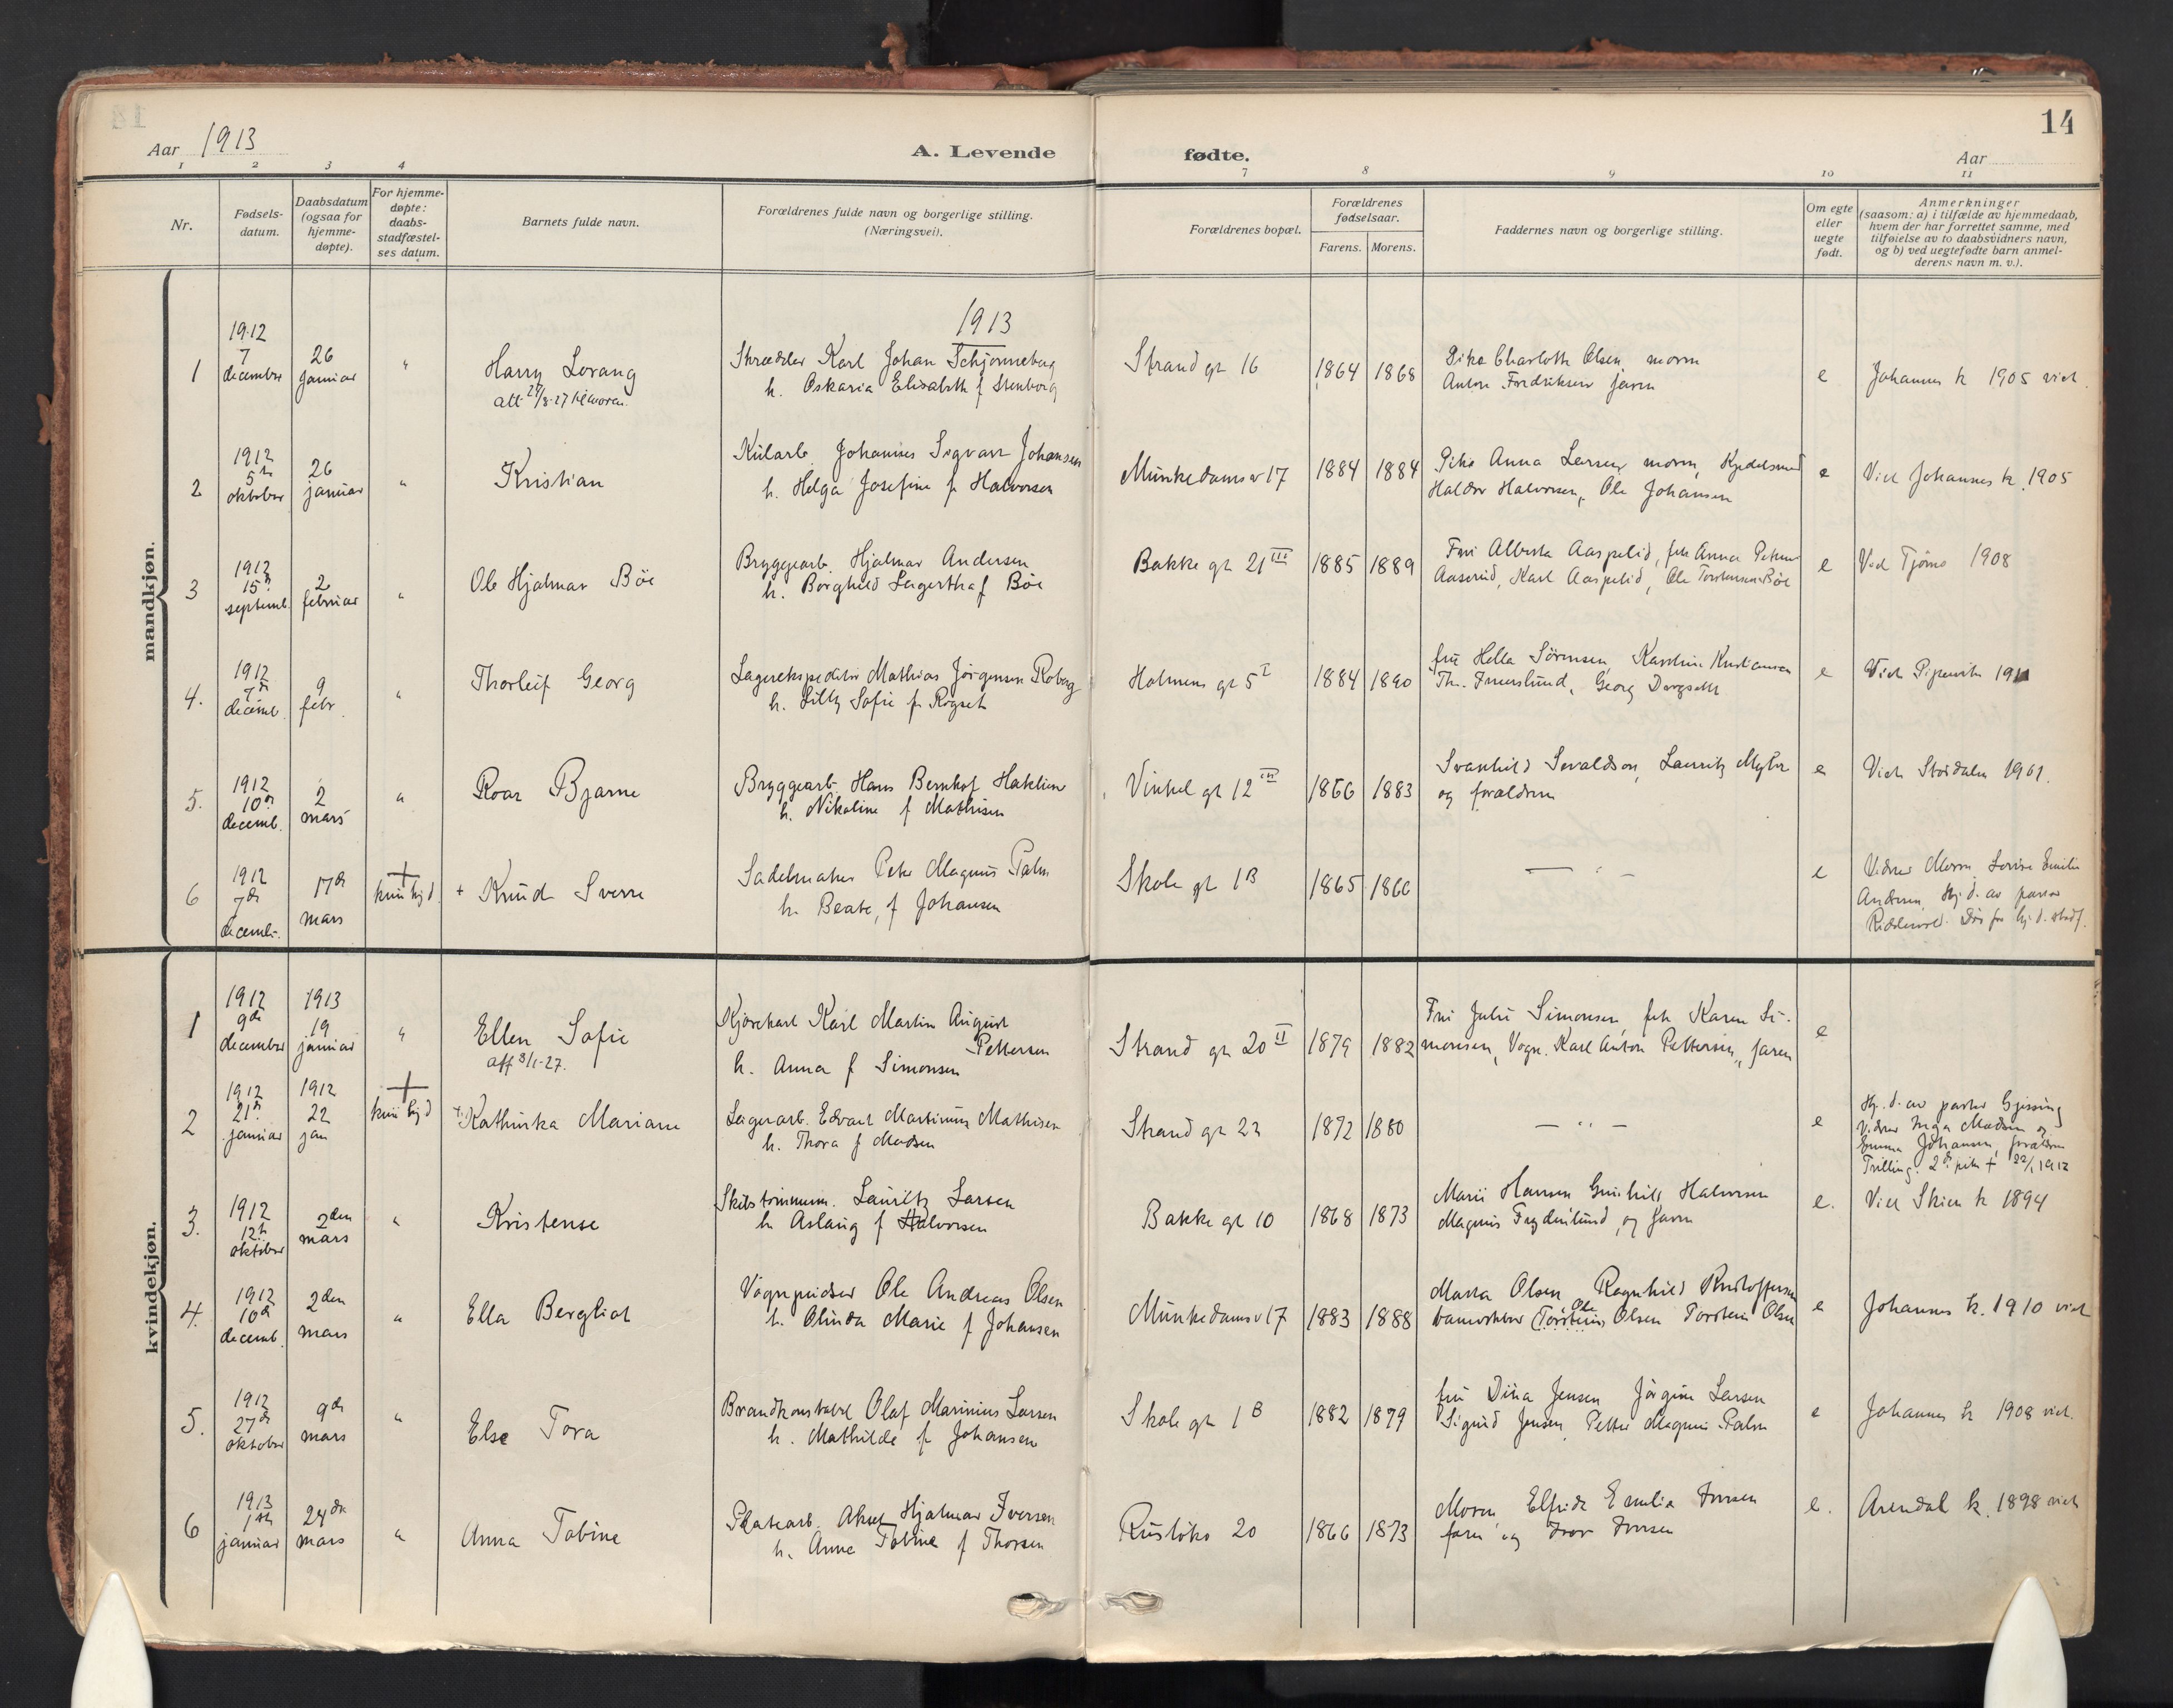 14
Aar 1913
A. Levende fødte.
Aar
1 2 3 4 7 8 9 10 11
Nr.
Fødsels-
datum.
Daabsdatum
(ogsaa for
hjemme-
døpte).
For hjemme-
døpte:
daabs-
stadfæstel-
ses datum.
Barnets fulde navn.
Forældrenes fulde navn og borgerlige stilling.
(Næringsvei).
Forældrenes bopæl.
Forældrenes
fødselsaar.
Farens. Morens.
Faddernes navn og borgerlige stilling.
Om egte
eller
uegte
født.
Anmerkninger
(saasom: a) i tilfælde av hjemmedaab,
hvem der har forrettet samme, med
tilføielse av to daabsvidners navn,
og b) ved uegtefødte barn anmel-
derens navn m. v.).
mandkjøn.
1913
1
1912
7
december
26
januar
"
Harry Lorang
att 27/8-27
Skrædder Karl Johan Schjønneberg
h. Oskaria Elisabeth f Stenborg
Strand gt 16
1864 1868
Pike Charlotte Olsen moren
Anton Fredriksen faren
e
Johannes k 1905 viet.
2
1912
5te
oktober
26
januar
"
Kristian
Kularb. Johannes Sigvart Johansen
h. Helga Josefine f. Halvorsen
Munkedamsv 17
1884 1884
Pike Anna Larsen, moren, Kjedelsmed
Haldor Halvorsen, Ole Johansen
e
Viet Johannes k. 1905
3
1912
15de
septemb.
2
februar
"
Ole Hjalmar Böe
Bryggearb. Hjalmar Andersen
h. Borghild Lagertha f Böe
Bakke gt 21 III
1885 1889
Fru Alberta Aaspelid, frk Anna
Aaserud, Karl Aaspelid, Ole Torstensen Böe
e
Ved Tjømø 1908
4.
1912
7de
decemb.
9
febr.
"
Thorleif Georg
Lagerekspeditør Mathias Jörgensen Roberg
h. Lilly Sofie f. Rögset
Holmens gt 5 I
1884 1890
fru Hella Sörensen, Kristiansen
Th. Georg
e
Viet Pipervik 1911
5.
1912
10de
decemb.
2
mars
"
Roar Bjarne
Bryggearb. Hans Bernhof Haklien
h. Nikoline f Mathisen
Vinkel gt 12 III
1866 1883
Svanhild Sevaldson, Lauritz Myhr
og forældrene
e
Viet Stordalen 1901.
6
1912
7de
decemb.
17de
mars
+
kun hj d.
+ Knud Sverre
Sadelmaker Peter Magnus Palm
h. Beate, f Johansen
Skole gt 1 B
1865 1866
— " —
e
Vidner Moren Lovise Emilie
Andersen Hj. d. av pastor
Riddervold. Död før hj. d. stadf.
kvindekjøn.
1
1912
9de
december
1913
19
januar
"
Ellen Sofie
att 3/1-27.
Kjørekarl Karl Martin August
Pettersen
h. Anna f Simonsen
Strand gt 20 II
1879 1882
Fru Julie Simonsen, frk Karen Si-
monsen, Vogn. Karl Anton Pettersen, faren
e
2
1912
21de
januar
1912
22
jan
+
kun hj d
+ Kathinka Mariane
Lagerarb. Edvart Martinius Mathisen
h. Thora f Madsen
Strand gt 23
1872 1880
— " —
e
Hj. d. av pastor Gjessing
Vidner Inga Madsen og
Emma Johansen, forældrene
Trilling. 2de pike + 22/1 1912
3.
1912
12te
oktober
2den
mars
"
Kristense
Skibstömmerm. Lauritz Larsen
h. Aslaug f Halvorsen
Bakke gt 10
1868 1873
Marie Hansen Gunhild Halvorsen
Magnus Frydenlund, og faren
e.
Viet Skien k 1894
4.
1912
10de
decemb.
2den
mars
"
Ella Bergliot
Vognpudser Ole Andreas Olsen
h. Olinda Marie f Johansen
Munkedamsv 17
1883 1888
Marta Olsen, Ragnhild Kristoffersen
banevokter (Torstein) Ole Olsen Torstein Olsen
e
Johannes k. 1910 viet
5.
1912
27de
oktober
9de
mars
"
Else Tora
Brandkonstabel Olaf Marinius Larsen
h. Mathilde f Johansen
Skole gt 1 B
1882 1879
fru Dina Jensen, Jörgine Larsen
Sigurd Jensen, Petter Magnus Palm
e
Johannes k 1908 viet.
6
1913
1ste
januar
24de
mars
"
Anna Tobine
Platearb. Aksel Hjalmar Iversen
h. Anne Tobine f Thorsen
Rusløkv 20
1866 1873
Moren, Elfride Emilie Iversen
faren og Ivar Iversen
e.
Arendal k. 1898 viet